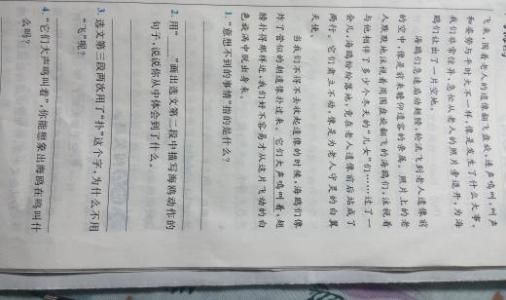 飞来,围着老人的遗像翻飞盘旋,连声鸣叫,叫声
和姿势与平时大不一样,像是发生了什么大事。
我们非常惊异,急忙从老人的照片旁退开,为海
鸥们让出了一片空地。
海鸥们急速扇动翅膀,轮流飞到老人遗像前
的空中,像是前来瞻仰遗容的亲属。照片上的老
人默默地注视着周围盘旋翻飞的海鸥们,注视着
与他相伴了多少个冬天的“儿女”们……过了一
会儿,海鸥纷纷落地,竟在老人遗像前后站成了
两行。它们肃立不动,像是为老人守灵的白翼
天使。
当我们不得不去收起遗像的时候,海鸥们像
炸了营似的朝遗像扑过来。它们大声鸣叫着,翅
膀扑得那样近,我们好不容易才从这片飞动的白
色旋涡中脱出身来。
1.“意想不到的事情”指的是什么?
2.用“ ”画出选文第二段中描写海鸥动作的
句子,说说你从中体会到了什么。
3.选文第三段两次用了“扑”这个字,为什么不用
“飞”呢?
4.“它们大声鸣叫着”,你能想象出海鸥在鸣叫什
么吗?